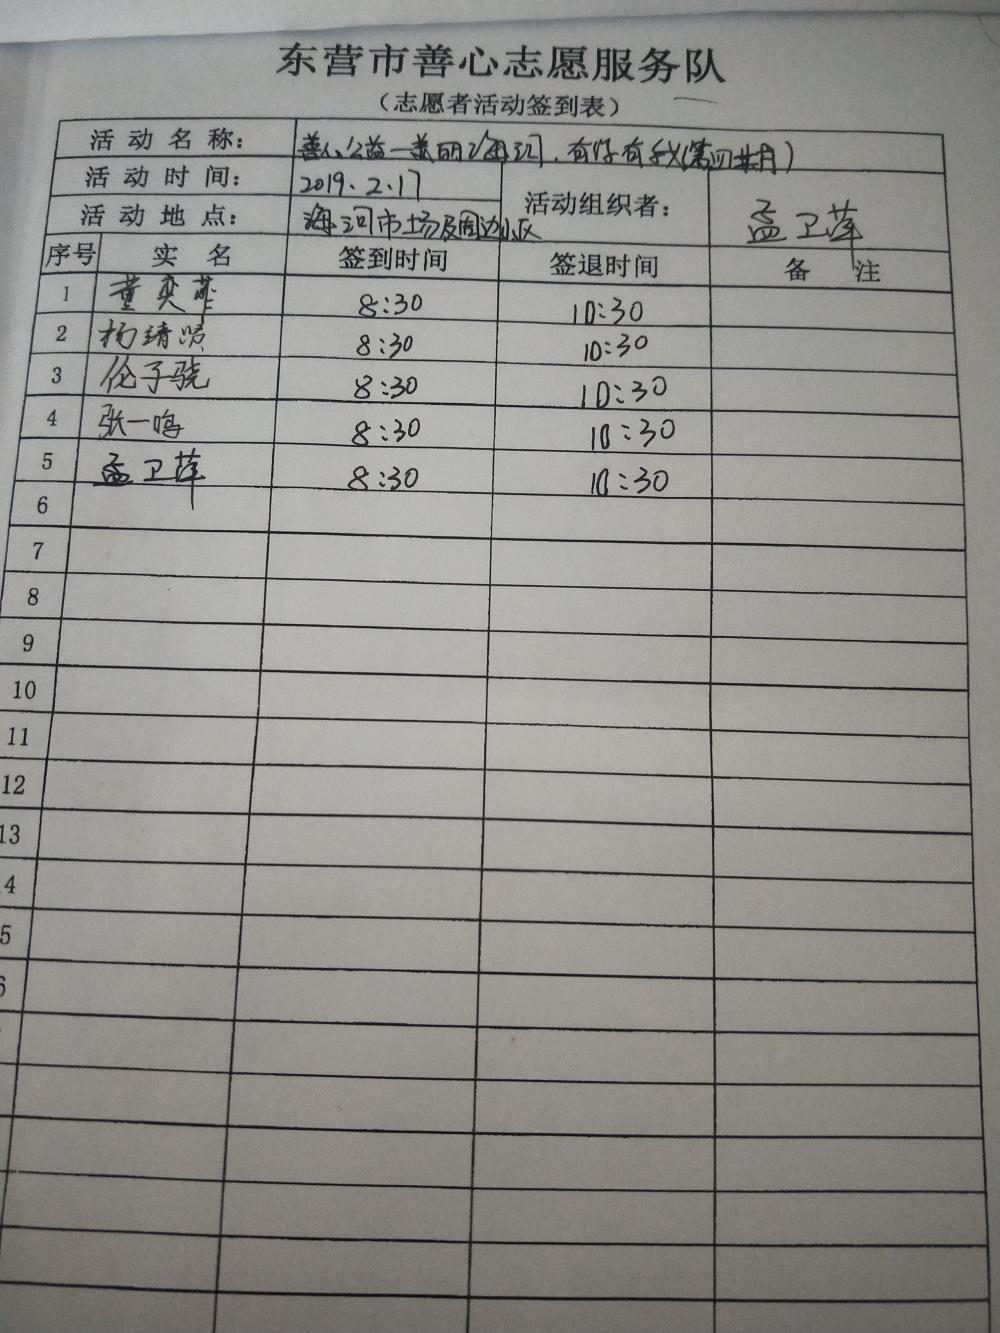 东营市善心志愿服务队
（志愿者活动签到表）
活动名称： 善心公益一美丽海河，有你有我（第四
活动时间： 2019.2.17 活动组织者： 孟卫萍
活动地点： 海河市场及周边小区
序号 实名 签到时间 签退时间 备注
1 董奕 8:30 10:30
2 杨靖 8:30 10:30
3 伦子骁 8:30 10:30
4 张一鸣 8:30 10:30
5 孟卫萍 8:30 10:30
6
7
8
9
10
11
12
13
4
5
6